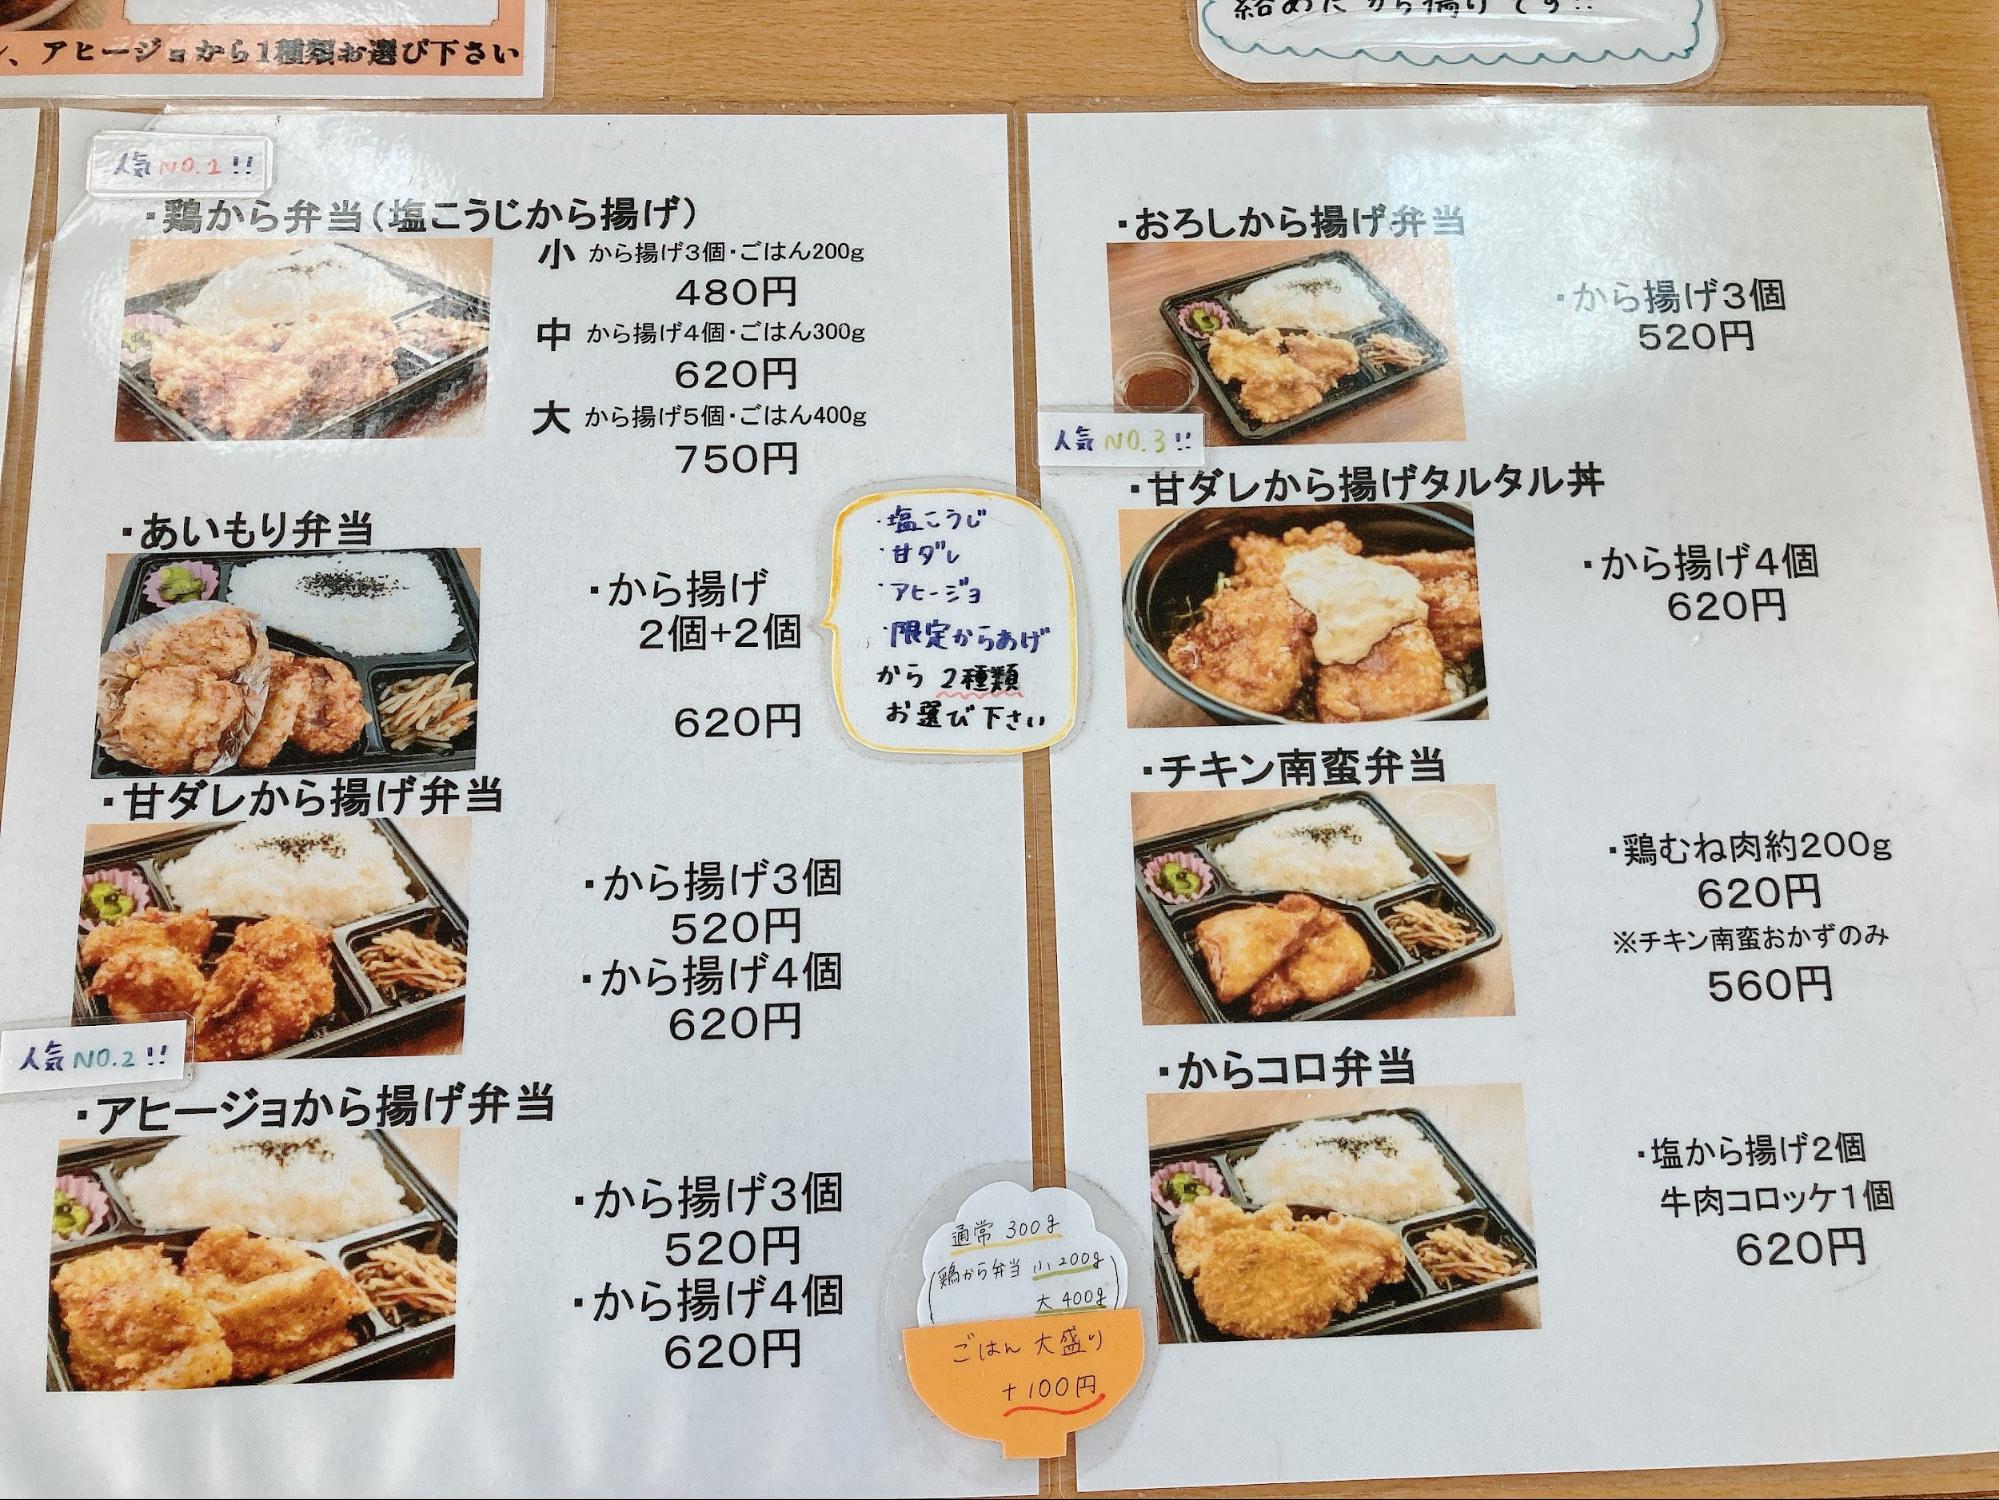 、アヒージョから1種類お選び下さい
から揚げです!!
人気NO.1!!
・鶏から弁当(塩こうじから揚げ)
小 から揚げ3個・ごはん200g
480円
中 から揚げ4個・ごはん300g
620円
大 から揚げ5個・ごはん400g
750円
・あいもり弁当
・から揚げ
2個+2個
620円
・塩こうじ
・甘ダレ
・アヒージョ
・限定からあげ
から 2種類
お選び下さい
・甘ダレから揚げ弁当
・から揚げ3個
520円
・から揚げ4個
620円
人気NO.2!!
・アヒージョから揚げ弁当
・から揚げ3個
520円
・から揚げ4個
620円
通常 300g
(鶏から弁当 小200g
大 400g)
ごはん 大盛り
+100円
・おろしから揚げ弁当
・から揚げ3個
520円
人気NO.3!!
・甘ダレから揚げタルタル丼
・から揚げ4個
620円
・チキン南蛮弁当
・鶏むね肉約200g
620円
※チキン南蛮おかずのみ
560円
・からコロ弁当
・塩から揚げ2個
牛肉コロッケ1個
620円